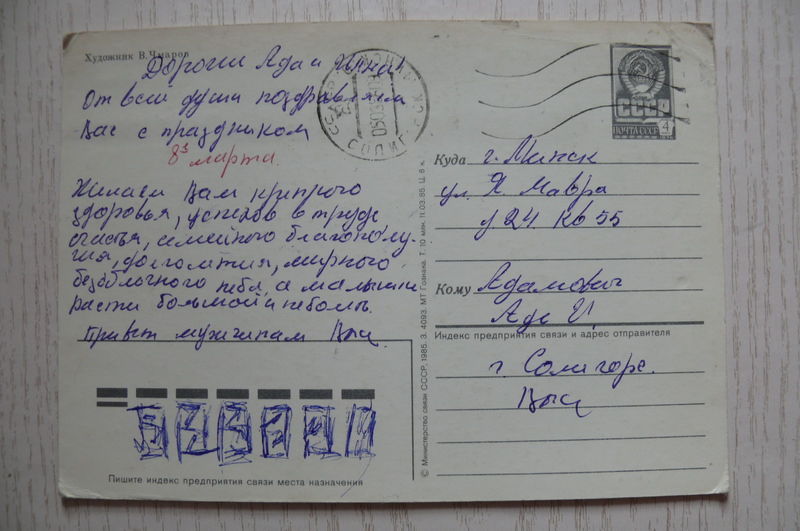 Художник В. Чмаров
Дорогии Ада и Инна!
От всей души поздравляем
Вас с праздником
8з марта.
Желаем Вам крепкого
здоровья, успехов в труде
счастья, семейного благополу-
чия, долголетия, мирного
безоблачного неба, а малышки
расти большой и не болеть.
Привет мужчинам
СССР
ПОЧТА СССР
4
Куда г. Минск
ул. Я. Мавра
д 24 кв 55
Кому Адамович
Аде И
Индекс предприятия связи и адрес отправителя
г. Солигорс.
© Министерство связи СССР, 1985. З. 4093. МТ Гознака. Т. 10 млн. 11.03.85. Ц. 6 к.
Пишите индекс предприятия связи места назначения